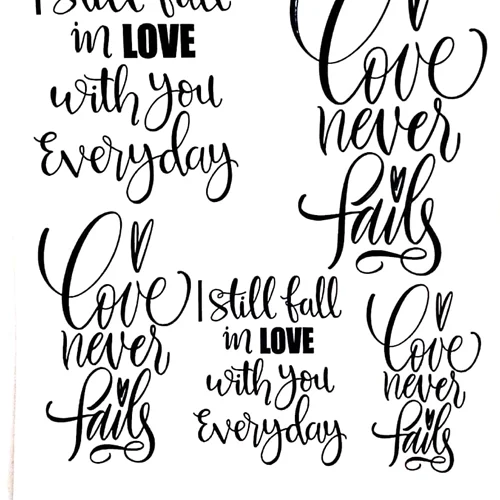 I still fall
in LOVE
with you
Everyday
Love
never
fails
Love
never
fails
I still fall
in LOVE
with you
Everyday
Love
never
fails